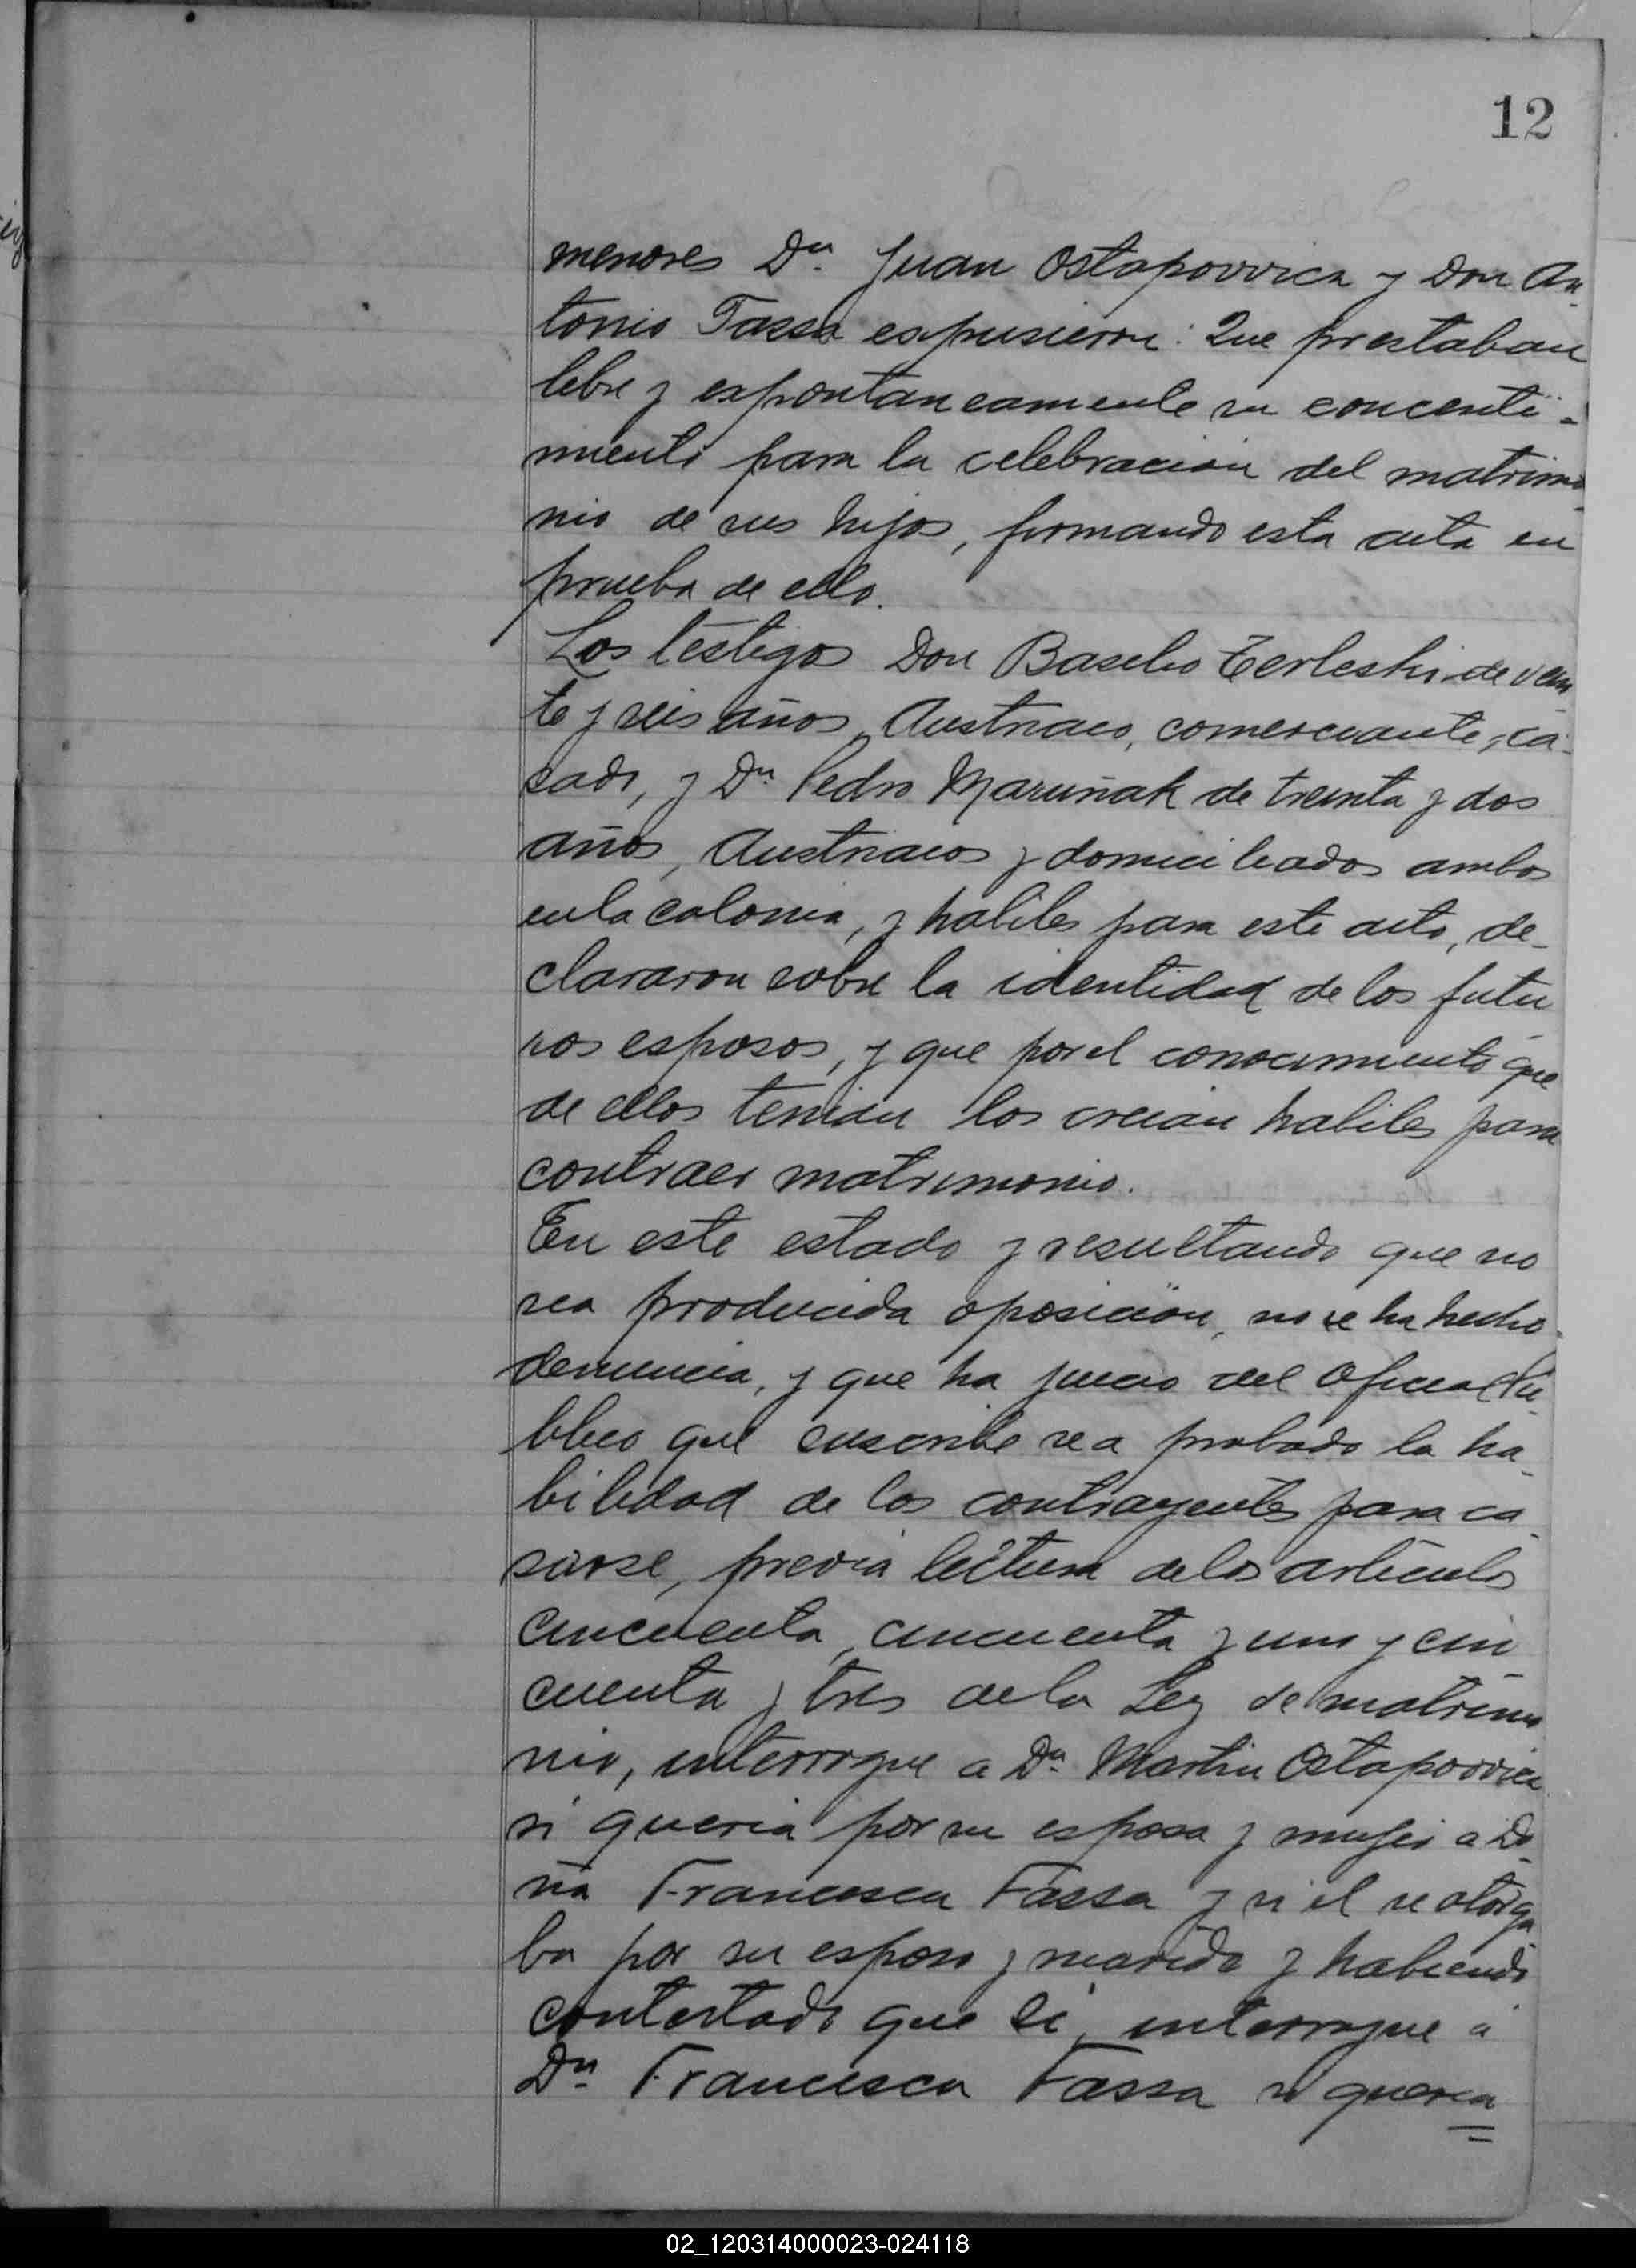 12
menores Dn. Juan Ostapowica y Don An-
tonio Fassa expusieron: Que prestaban
libre y expontaneamente su concenti-
miento para la celebracion del matrimo
nio de sus hijos, firmando esta acta en
prueba de ello.
Los testigos Don Basilio Terleski de vein
te y seis años, Austriaco, comerciante, ca-
sado, y Dn. Pedro Maruñak de treinta y dos
años, Austriacos y domiciliados ambos
en la colonia, y habiles para este acto, de-
clararon sobre la identidad de los futu
ros esposos, y que por el conocimiento que
de ellos tenian los creian habiles para
contraer matrimonio.
En este estado y resultando que no
sea producida oposicion, no se ha hecho
denuncia, y que ha juicio del Oficial Pu-
blico que suscribe se a probado la ha-
bilidad de los contrayentes para ca
sarse, previa lectura de los articulos
cincuenta, cincuenta y uno y cin
cuenta y tres de la Ley de matrimo
nio, interrogue a Dn. Martin Ostapowica
si queria por su esposa y mujer a Do-
ña Francisca Fassa y si el se otorga
ba por su esposo y marido y habiendo
contestado que si, interrogue a
Dn. Francisca Fassa si queria
02_120314000023-024118